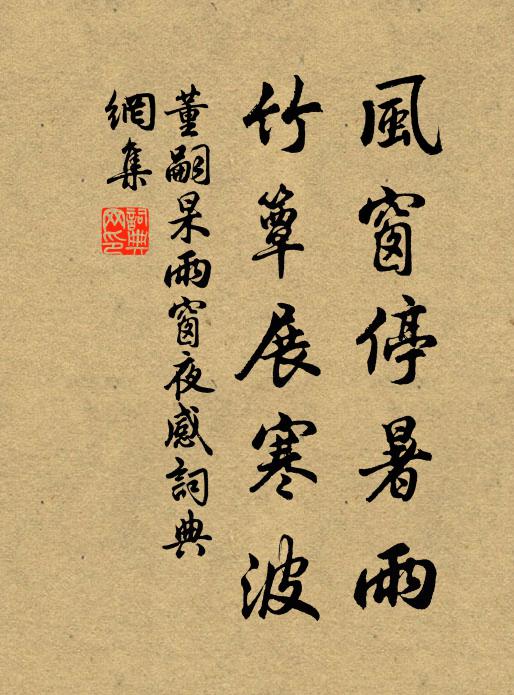 風窗停暑雨
竹簟展寒波
董嗣杲雨窗夜感詞典
網集
詞典
网印